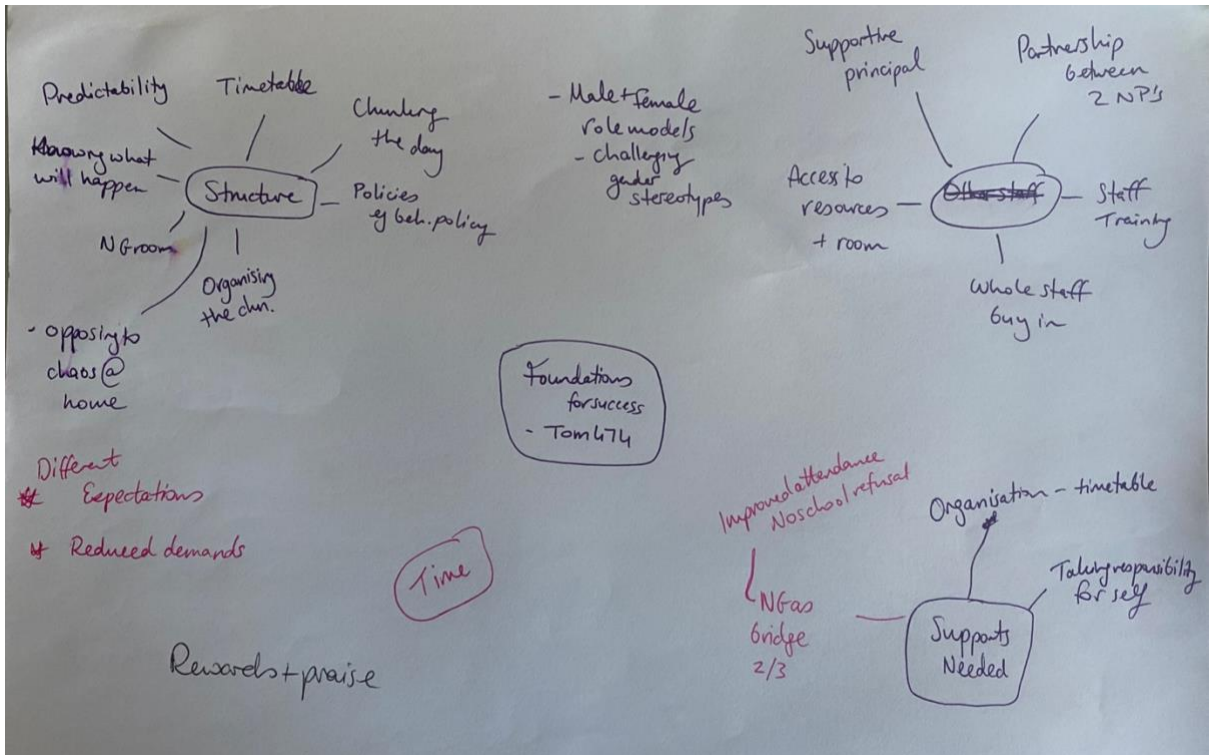 Predictability
Timetable
Chunking
the day
Knowing what
will happen
Structure
Policies
eg beh. policy
NG room
Organising
the chn.
- opposing to
chaos @
home
- Male + female
role models
- challenging
gender
stereotypes
Supportive
principal
Partnership
between
2 NP's
Access to
resources
+ room
Other staff
Staff
Training
Whole staff
buy in
Foundations
for success
Different
Expectations
Reduced demands
Time
Rewards + praise
Improved attendance
No school refusal
NG as
bridge
2/3
Organisation - timetable
Taking responsibility
for self
Supports
Needed